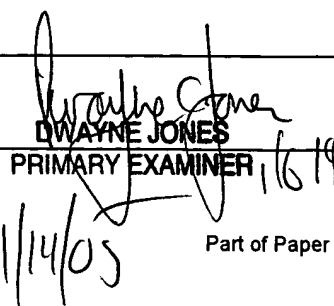 Dwayne Jones
DWAYNE JONES
PRIMARY EXAMINER
1/14/05
Part of Paper